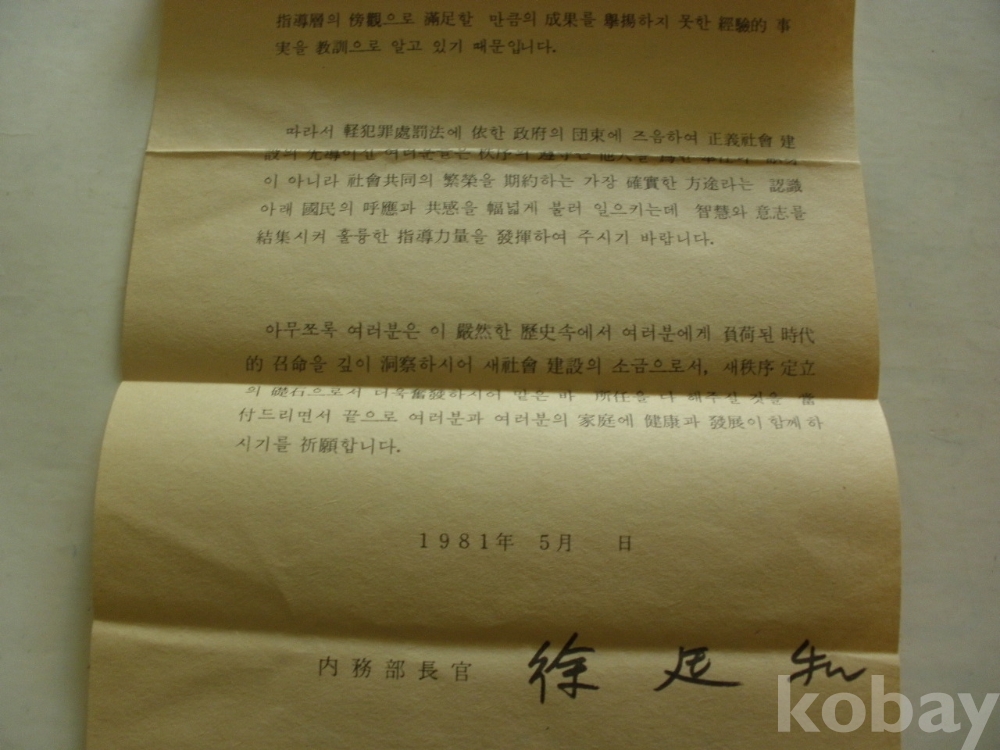 指導層의 傍觀으로 滿足할 만큼의 成果를 擧揚하지 못한 經驗的 事
実을 教訓으로 알고 있기 때문입니다.
따라서 軽犯罪處罰法에 依한 政府의 団束에 즈음하여 正義社會 建
設의 先導이신 여러분들은 秩序의 遵守는 他人을 爲한 奉仕가
이 아니라 社會共同의 繁榮을 期約하는 가장 確實한 方途라는 認識
아래 國民의 呼應과 共感을 幅넓게 불러 일으키는데 智慧와 意志를
結集시켜 훌륭한 指導力量을 發揮하여 주시기 바랍니다.
아무쪼록 여러분은 이 嚴然한 歷史속에서 여러분에게 負荷된 時代
的 召命을 깊이 洞察하시어 새社會 建設의 소금으로서, 새秩序 定立
의 礎石으로서 더욱 奮發하시어 맡은 바 所任을 다 해주실 것을 當
付드리면서 끝으로 여러분과 여러분의 家庭에 健康과 發展이 함께 하
시기를 祈願합니다.
1981年 5月 日
内務部長官 徐
kobay